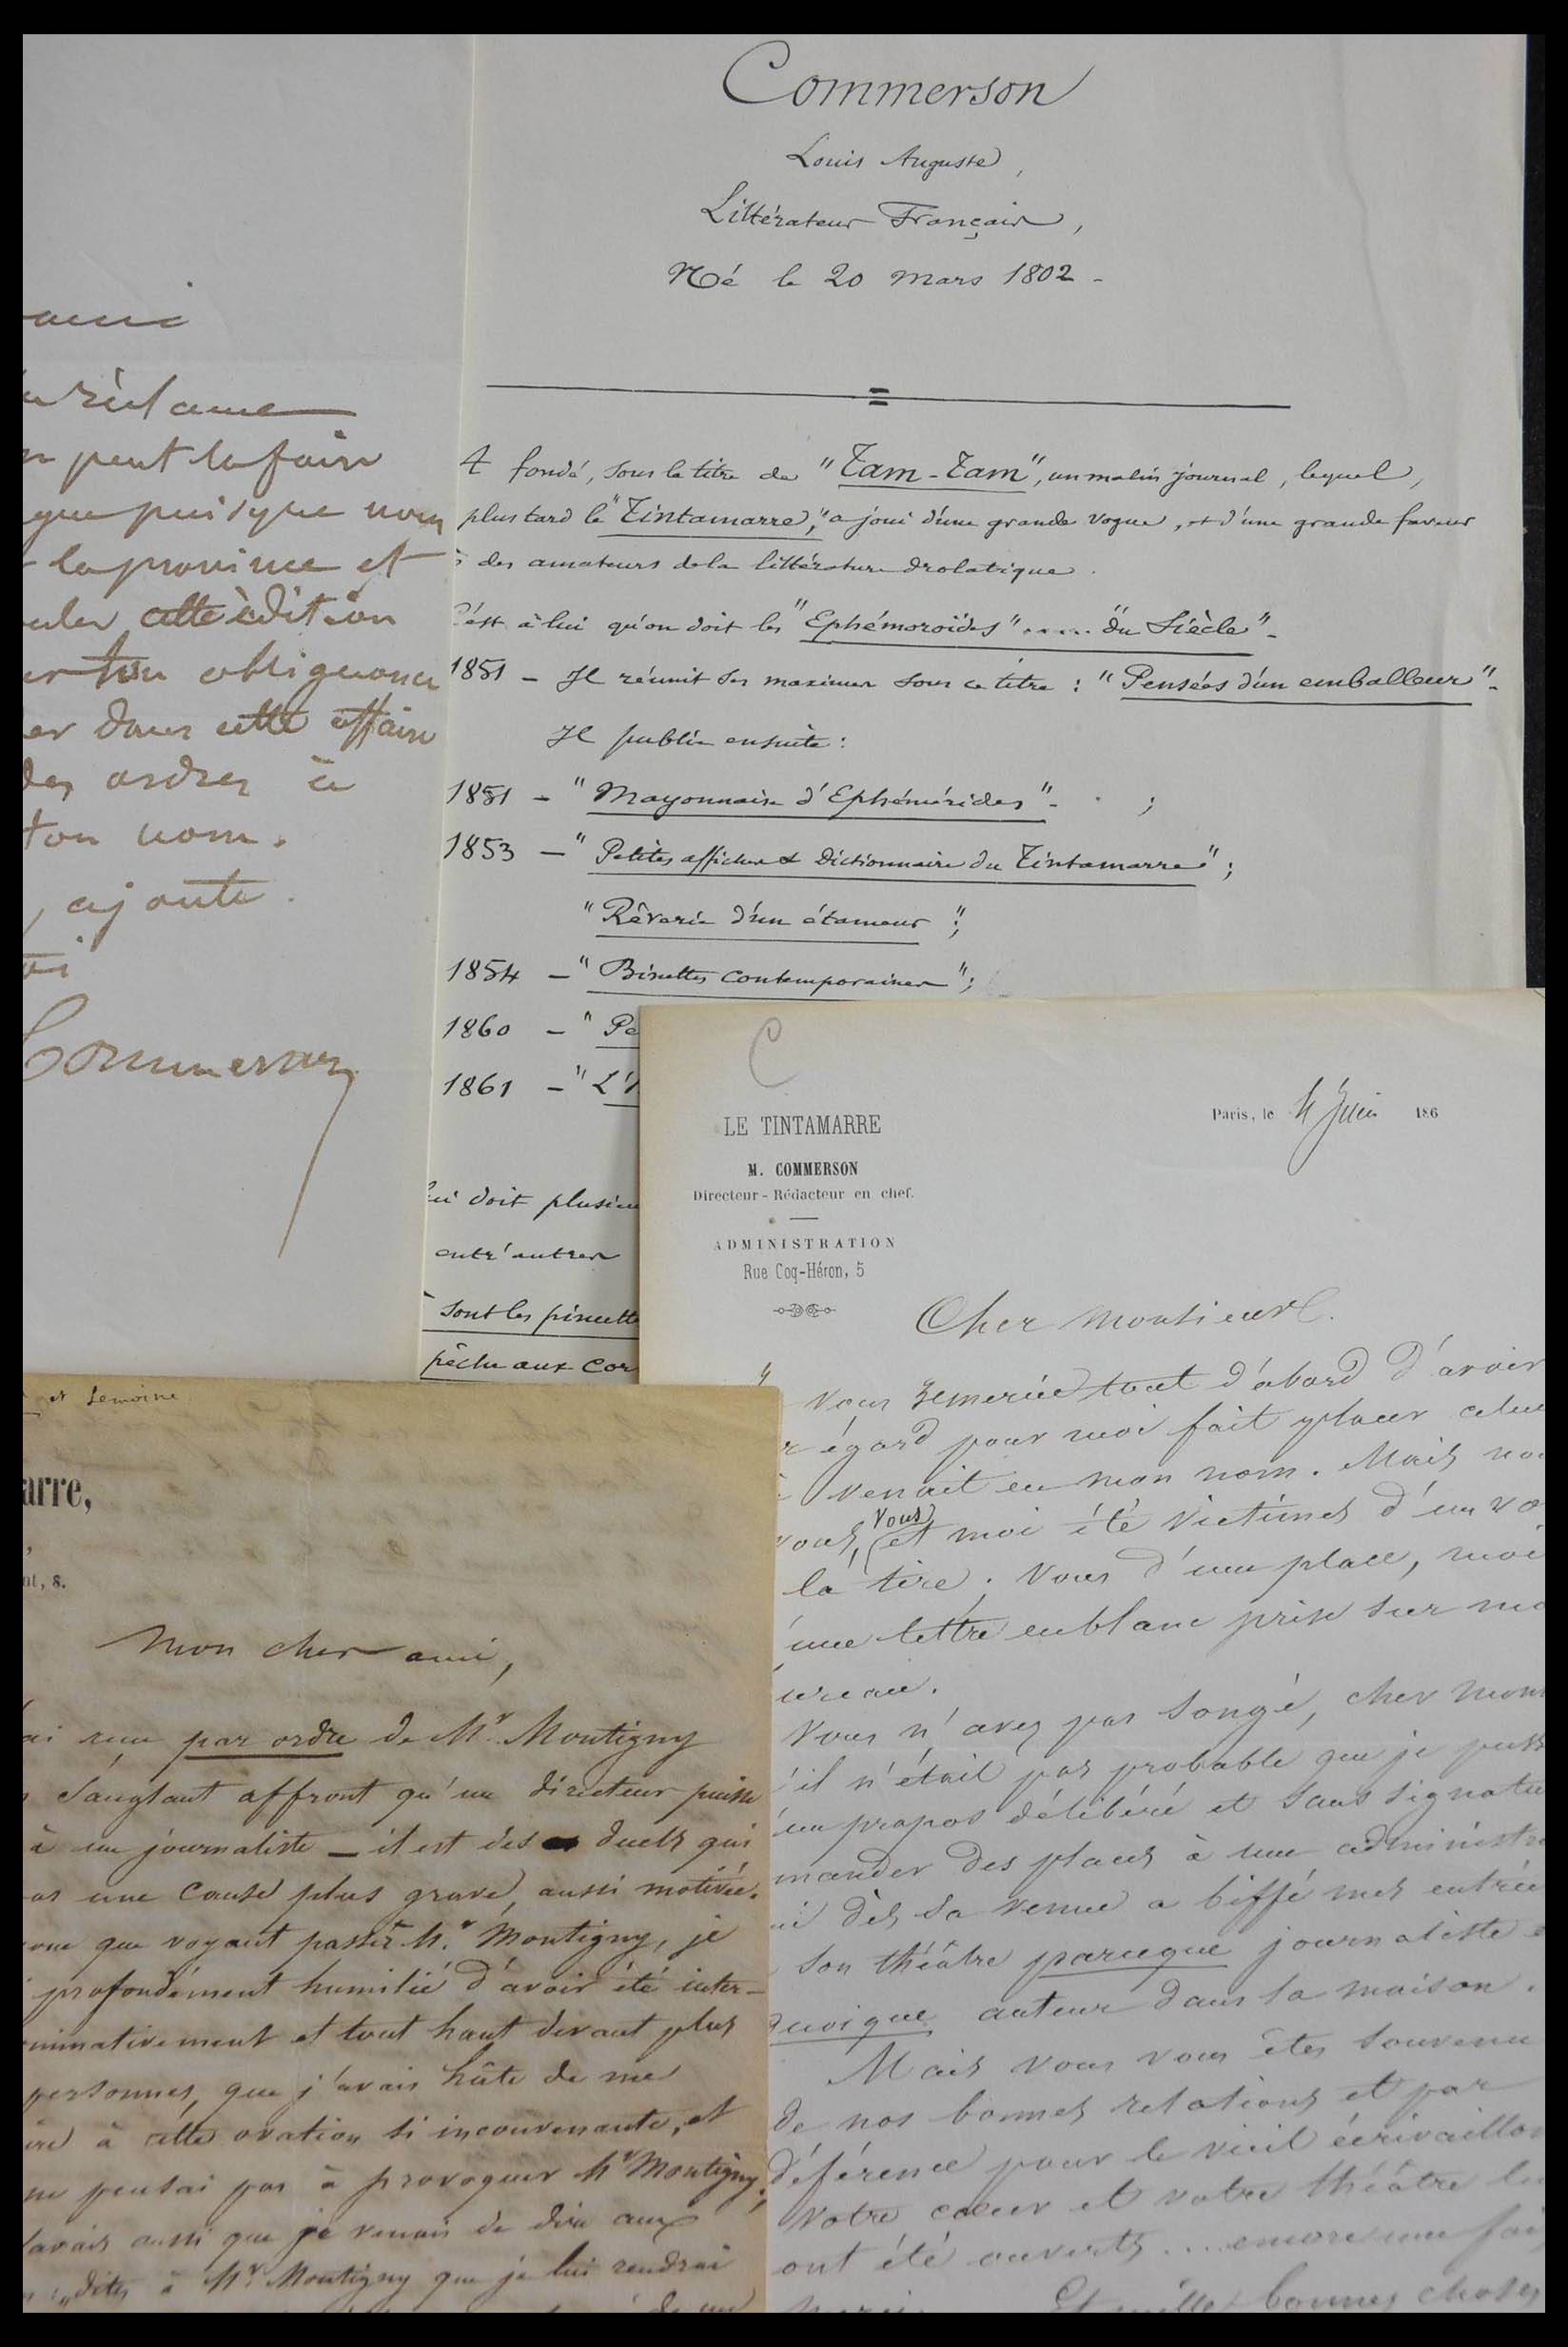 Commerson
Louis Auguste,
Littérateur Français,
Né le 20 mars 1802 -
A fondé, sous le titre de "Tam-Tam", un malin journal, lequel,
plus tard le "Tintamarre", a joui d'une grande vogue, et d'une grande faveur
des amateurs de la littérature drolatique.
C'est à lui qu'on doit les "Ephémoroïdes" ..... "du Siècle" -
1851 - Il réunit ses maximes sous ce titre : "Pensées d'un emballeur" -
Il publia ensuite :
1851 - "Mayonnaise d'Ephémérides" - ;
1853 - "Petites affiches & Dictionnaire du Tintamarre" ;
"Rêverie d'un étameur" ;
1854 - "Binettes contemporaines" ;
1860 - "Pe
1861 - "L'
lui doit plusieu
entr'autres
sont les pincette
pêche aux cor
réclame
peut la faire
que puisque nous
la province et
cette édition
ton obligeance
er dans cette affaire
des ordres à
ton nom.
, ajoute.
Commerson
C
LE TINTAMARRE
M. COMMERSON
Directeur-Rédacteur en chef.
ADMINISTRATION
Rue Coq-Héron, 5
Paris, le 4 Juin 186
Cher Monsieur
Vous remercie tout d'abord d'avoir
égard pour moi fait placer celui
venait en mon nom. Mais nou
vous, vous et moi été victimes d'un vo
la tire. Vous d'une place, moi
une lettre en blanc prise sur mo
ureau.
Vous n'avez pas songé, cher Mons
'il n'était pas probable que je puss
un propos délibéré et sans signatu
mander des places à une administra
dès sa venue a biffé mes entrée
son théâtre parceque journaliste e
quoique auteur dans la maison.
Mais vous vous êtes souvenu
de nos bonnes relations et par
déférence pour le vieil écrivaillon
Votre cœur et votre théâtre lu
ont été ouverts ... encore une foi
Et mille bonnes choses
et Lemoine
arre,
nt, 8.
Mon cher ami,
ai reçu par ordre de Mr. Montigny
sanglant affront qu'un directeur puisse
à un journaliste - il est des duels qui
as une cause plus grave, aussi motivée.
que voyant passer Mr. Montigny, je
profondément humilié d'avoir été inter-
minativement et tout haut devant plus
personnes, que j'avais hâte de me
ire à cette ovation si inconvenante, et
ne pensai pas à provoquer Mr Montigny;
savais aussi que je venais de dire aux
: "dites à Mr. Montigny que je lui rendrai